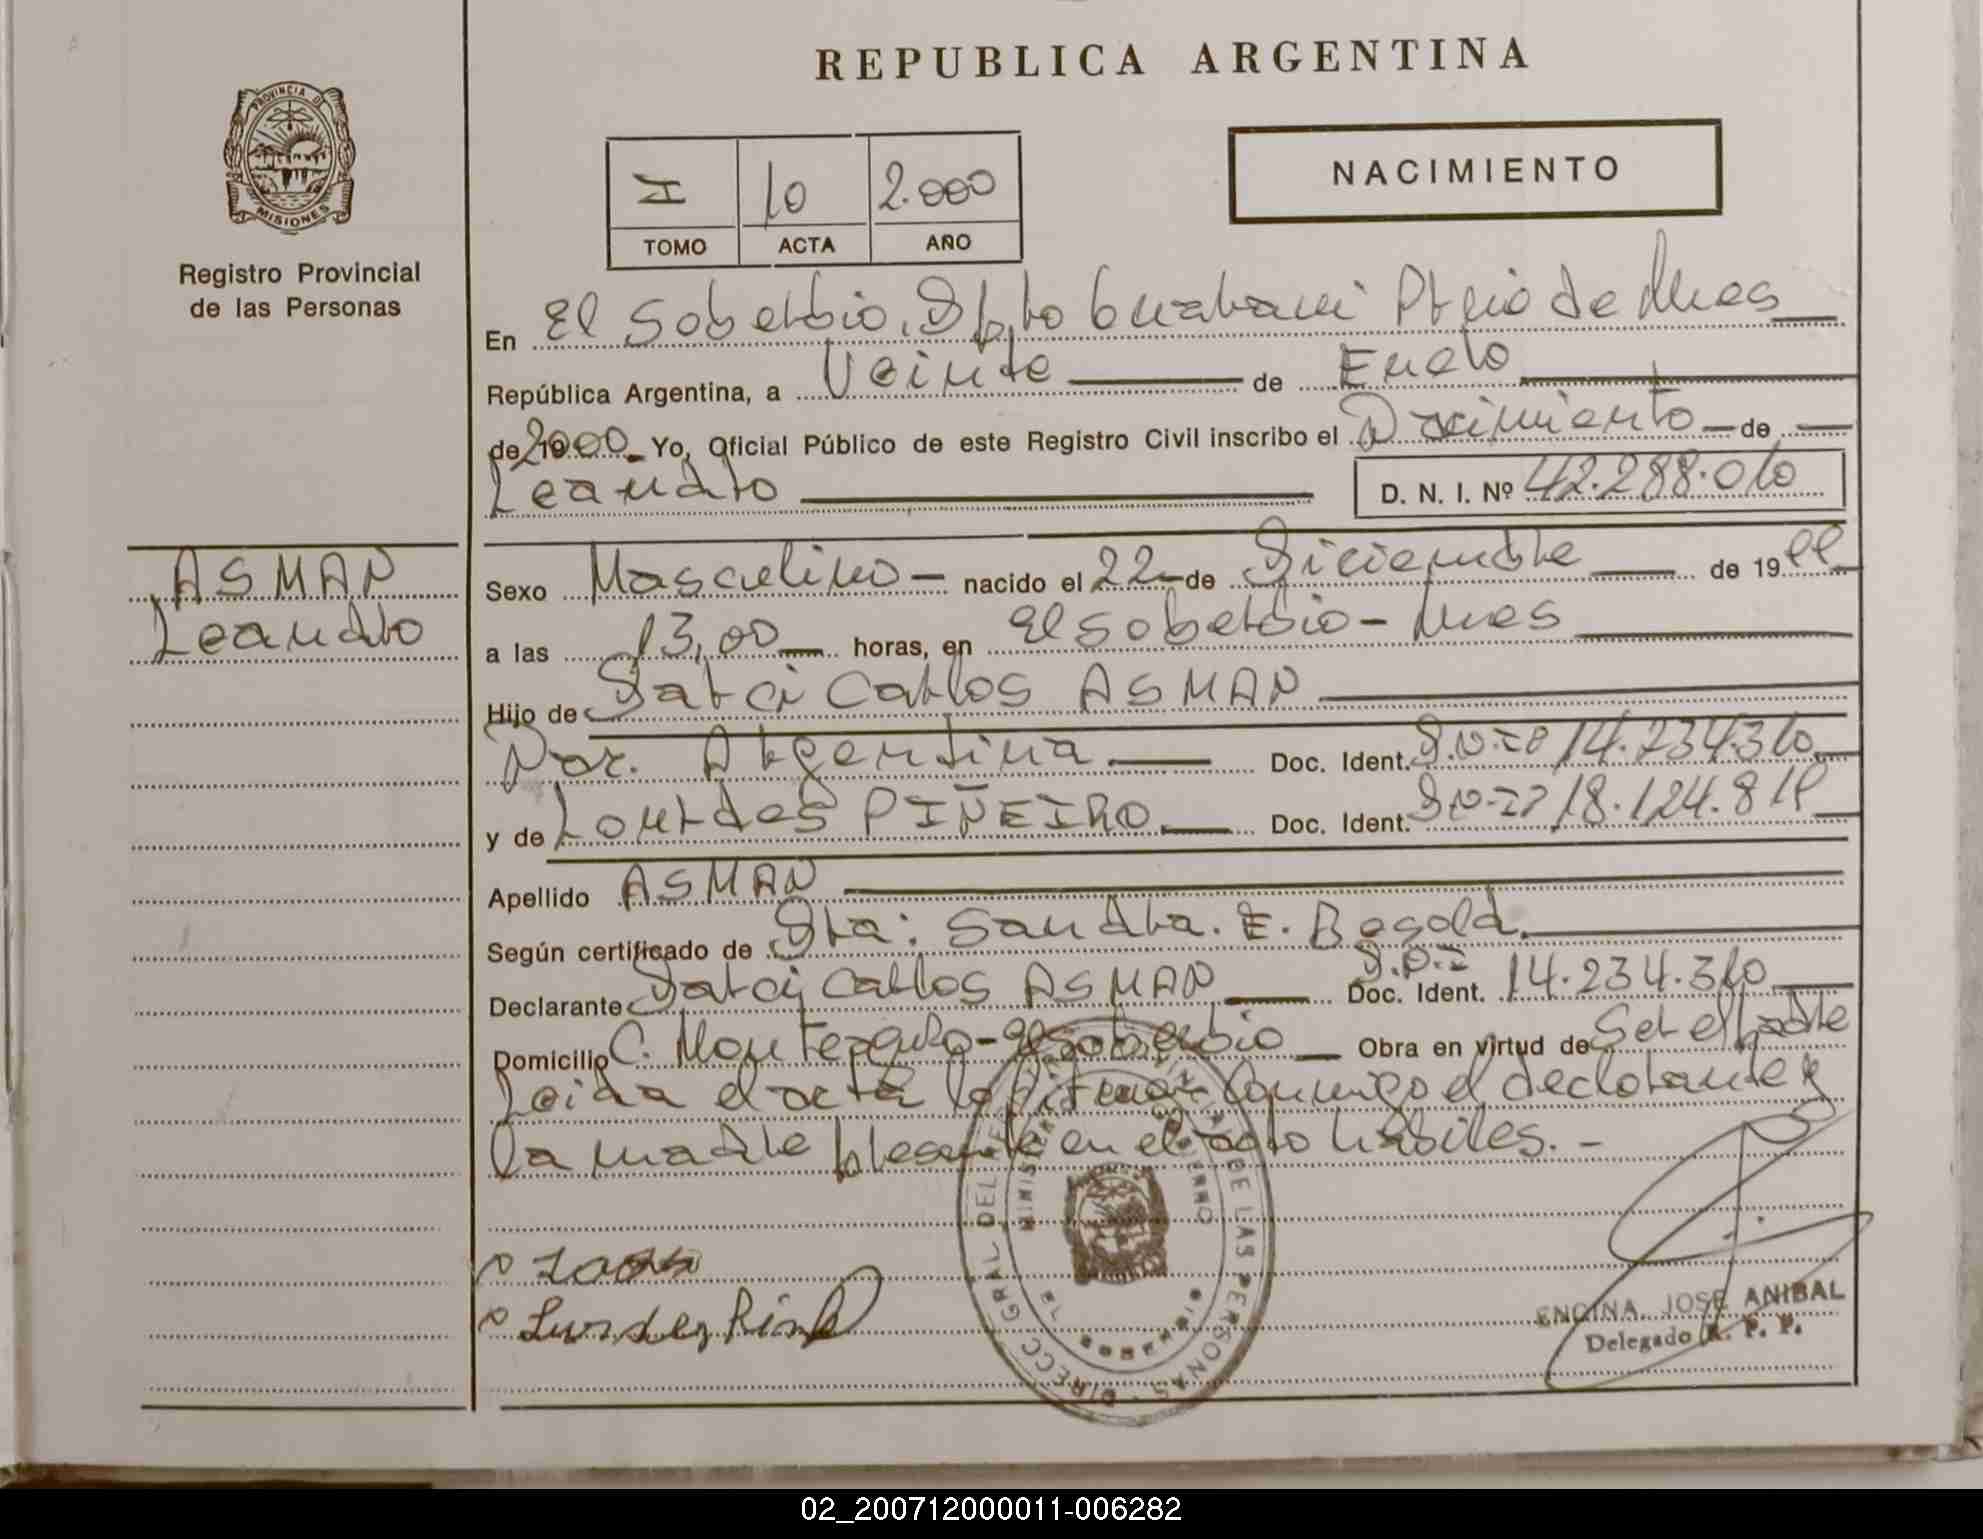 REPUBLICA ARGENTINA
PROVINCIA DE
MISIONES
Registro Provincial
de las Personas
I 10 2.000
TOMO ACTA AÑO
NACIMIENTO
En El Soberbio, Dpto Guarani Pcia de Mnes
República Argentina, a Veinte de Enero
de 2000 Yo, Oficial Público de este Registro Civil inscribo el Nacimiento de
Leandro D. N. I. Nº 42.288.010
ASMAN
Leandro
Sexo Masculino nacido el 22 de Diciembre de 1999
a las 13,00 horas, en El Soberbio - Mnes
Hijo de Darci Carlos ASMAN
Nac. Argentina Doc. Ident. 14.234.310
y de Lourdes PIÑEIRO Doc. Ident. 18.124.819
Apellido ASMAN
Según certificado de Dra: Sandra. E. Begold.
Declarante Darci Carlos ASMAN Doc. Ident. D.N.I 14.234.310
Domicilio C. Monteagudo - El Soberbio Obra en virtud de Ser el padre
Leida el acta la firman conmigo el declarante y
la madre presente en el acto hábiles. -
ENCINA, JOSE ANIBAL
Delegado R. P. P.
DIRECC GRAL DEL DE LAS PERSONAS
02_200712000011-006282